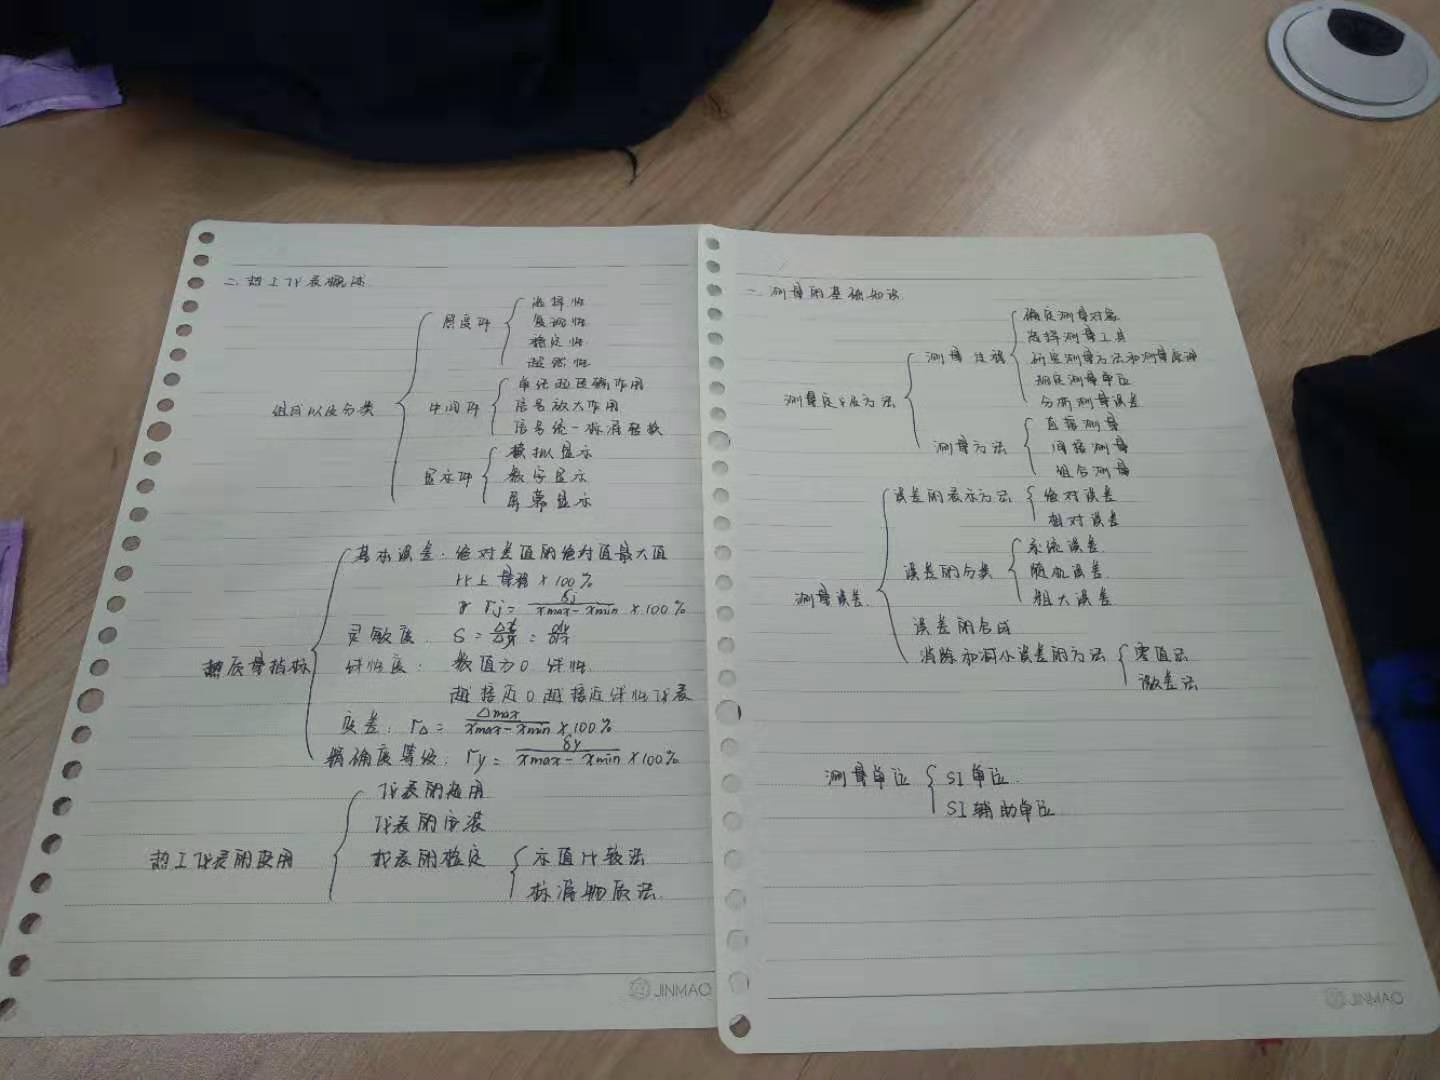 二、热工仪表概述
感受件
选择性
复现性
稳定性
超然性
组成以及分类
中间件
单纯的区輸作用
信号放大作用
信号统一标准整数
显示件
模拟显示
数字显示
屏幕显示
基本误差:绝对差值的绝对值最大值
比上量程×100%
γ rj = δj / xmax - xmin ×100%
灵敏度. S =
线性度: 数值为0 线性.
越接近0越接近线性仪表
质量指标
变差: rΔ = Δmax / xmax - xmin ×100%
精确度等级: ry = δy / xmax - xmin ×100%
仪表的选用
仪表的安装
热工仪表的使用
仪表的检定
示值比较法
标准物质法.
JINMAO
一、测量的基础知识
测量过程
确定测量对象
选择测量工具
研究测量方法和测量原理
确定测量单位
分析测量误差
测量定义及方法
测量方法
直接测量
间接测量
组合测量
误差的表示方法
绝对误差
相对误差
误差的分类
系统误差.
随机误差.
粗大误差
测量误差.
误差的合成
消除和减小误差的方法
零值法
微差法
测量单位
SI单位.
SI辅助单位.
JINMAO